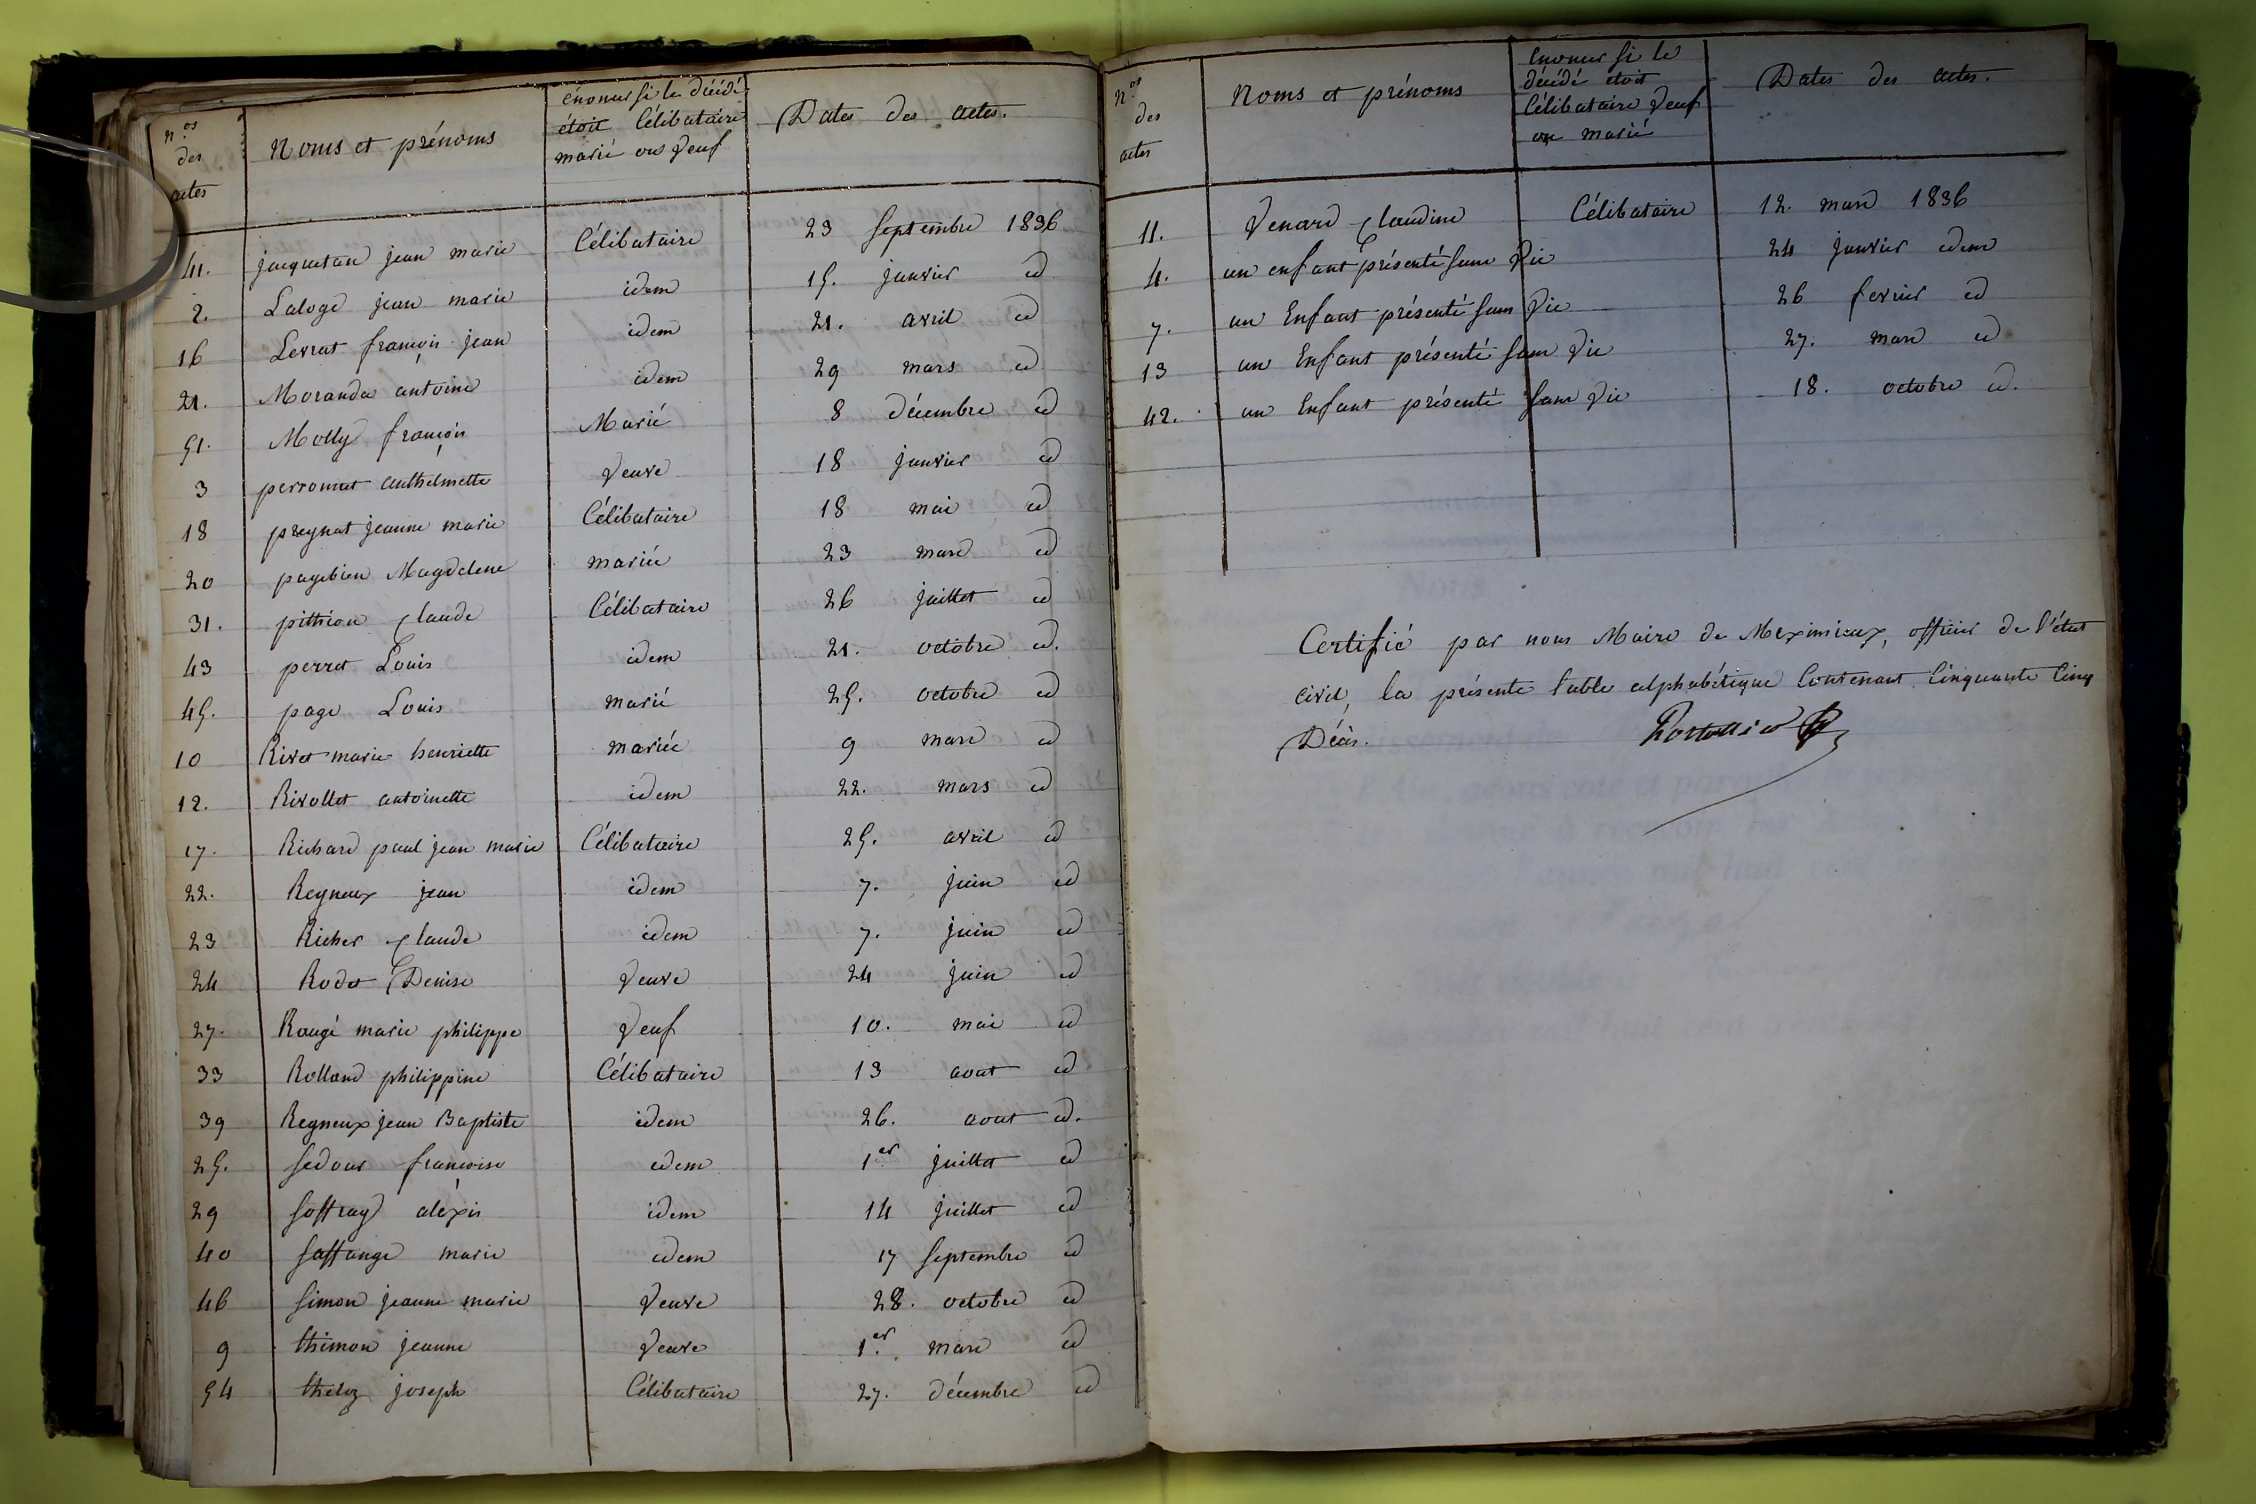 n.os des actes | Noms et prénoms | énoncer si le décédé étoit Célibataire marié ou veuf | Dates des actes.
41. jacquetan jean marie Célibataire 23 septembre 1836
2. Laloge jean marie idem 15. janvier id
16 Levrat françois jean idem 21. avril id
21. Moranda antoine idem 29 mars id
51. Molly françois Marié 8 décembre id
3 perronnet anthelmette veuve 18 janvier id
18 preynat jeanne marie Célibataire 18 mai id
20 payebien Magdelene mariée 23 mars id
31. pithion Claude Célibataire 26 juillet id
43 perret Louis idem 21. octobre id.
45. page Louis marié 25. octobre id
10 Rivet marie henriette mariée 9 mars id
12. Rivollet antoinette idem 22. mars id
17. Richard paul jean marie Célibataire 25. avril id
22. Regneux jean idem 7. juin id
23 Richer Claude idem 7. juin id
24 Rodet Denise veuve 24 juin id
27. Rougé marie philippe veuf 10. mai id
33 Rolland philippine Célibataire 13 aout id
39 Regneux jean Baptiste idem 26. aout id.
25. Sedour françoise idem 1er juillet id
29 Soffray aléxis idem 14 juillet id
40 Saffange marie idem 17 septembre id
46 Simon jeanne marie Veuve 28. octobre id
9 thimon jeanne Veuve 1er. mars id
54 theloz joseph Célibataire 27. décembre id
n.os des actes | Noms et prénoms | énoncer si le décédé étoit Célibataire veuf ou marié | Dates des actes.
11. Venard Claudine Célibataire 12. mars 1836
4. un enfant présenté sans vie 24 janvier idem
7. un Enfant présenté sans vie 26 fevrier id
13 un Enfant présenté sans vie 27. mars id
42. un Enfant présenté sans vie 18. octobre id.
Certifié par nous Maire de Meximieux, officier de l'état
civil, la présente table alphabétique Contenant Cinquante Cinq
Décès.